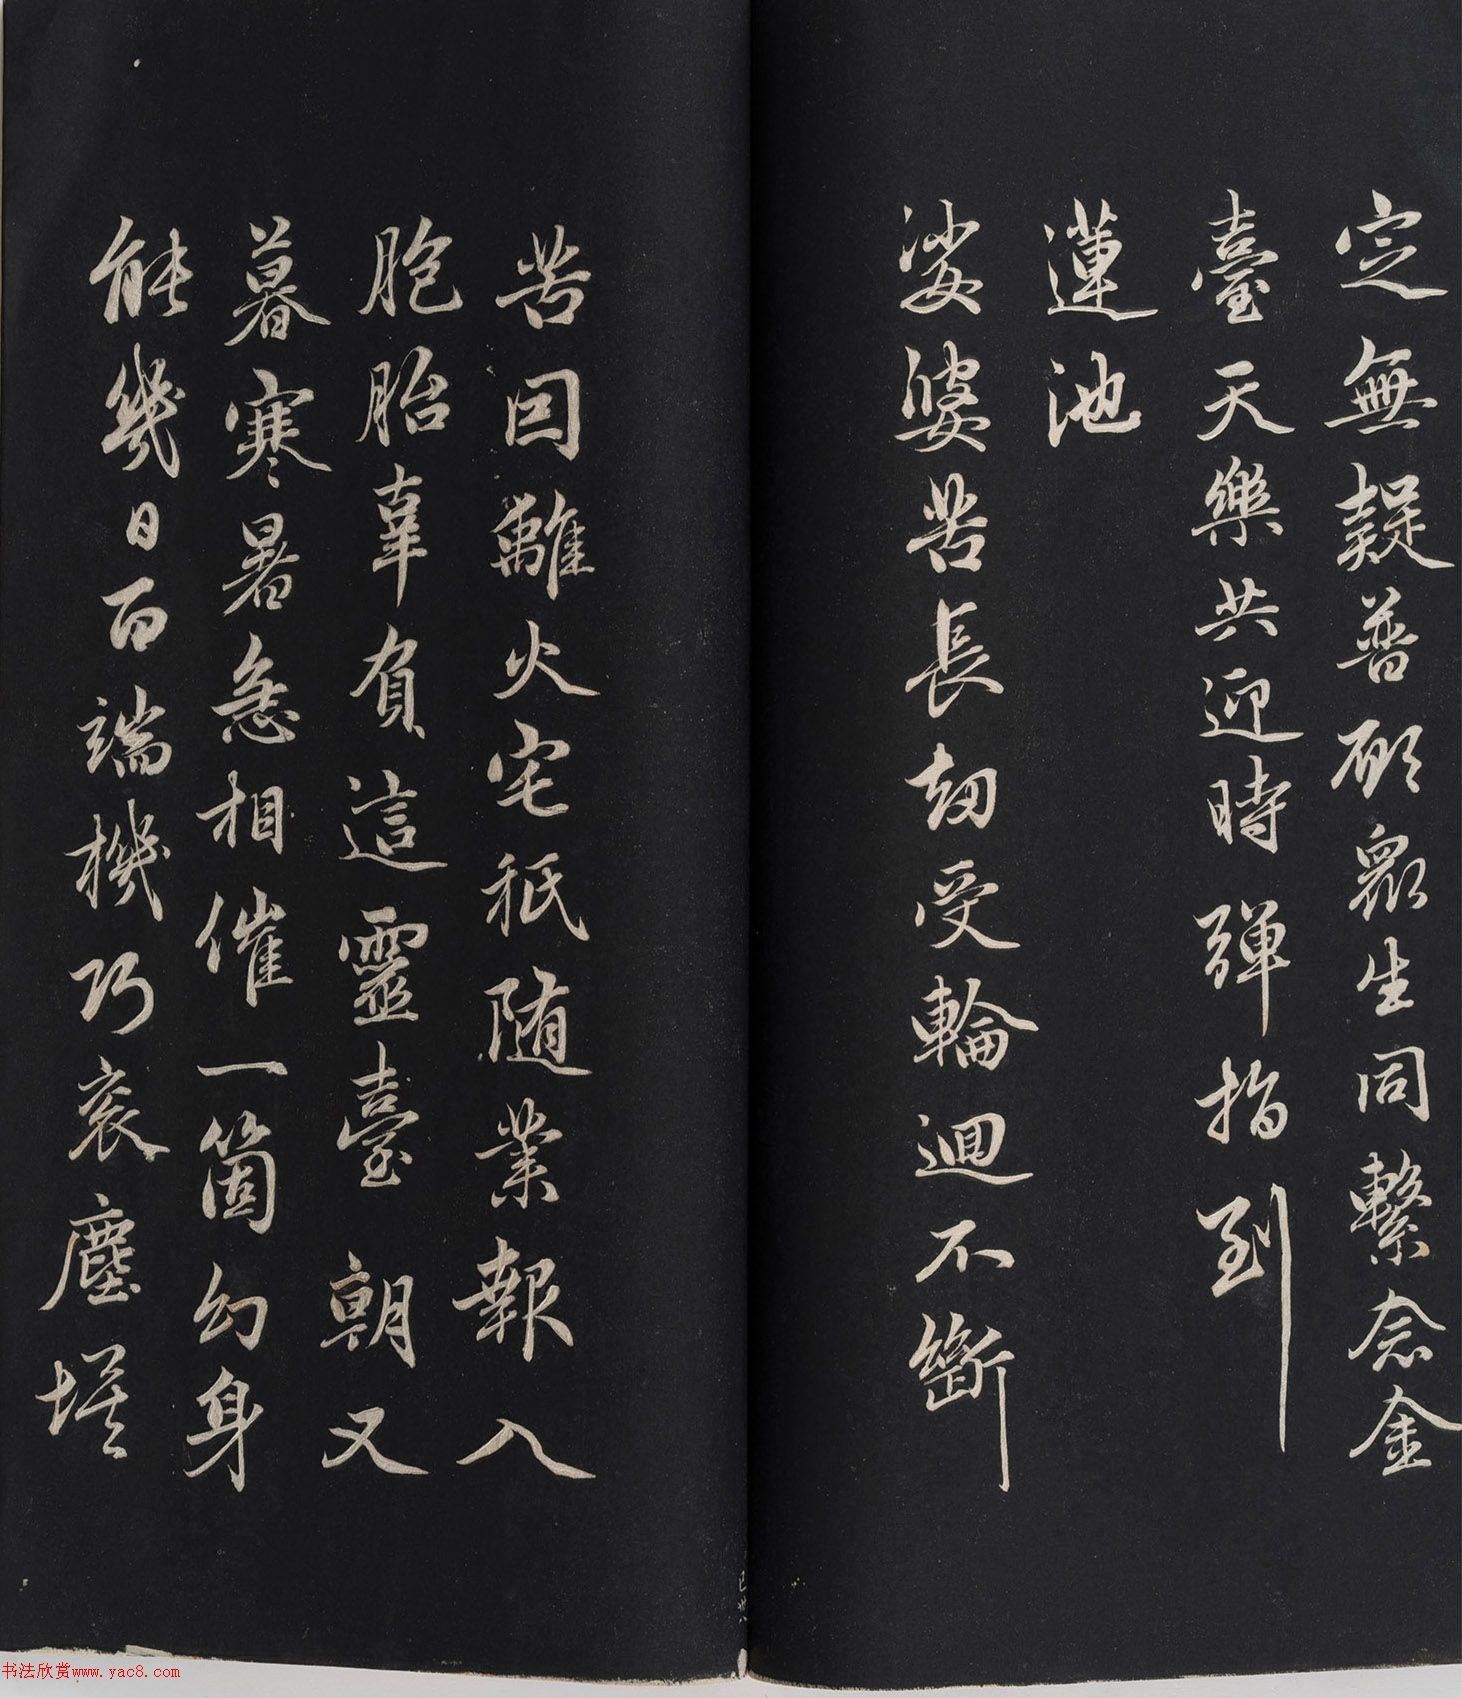 定無疑普願眾生同繫念金
臺天樂共迎時彈指到
蓮池
娑婆苦長劫受輪迴不斷
苦因離火宅秖随業報入
胞胎辜負這靈臺朝又
暮寒暑急相催一箇幻身
能幾日百端機巧衮塵埃
书法欣赏www.yac8.com